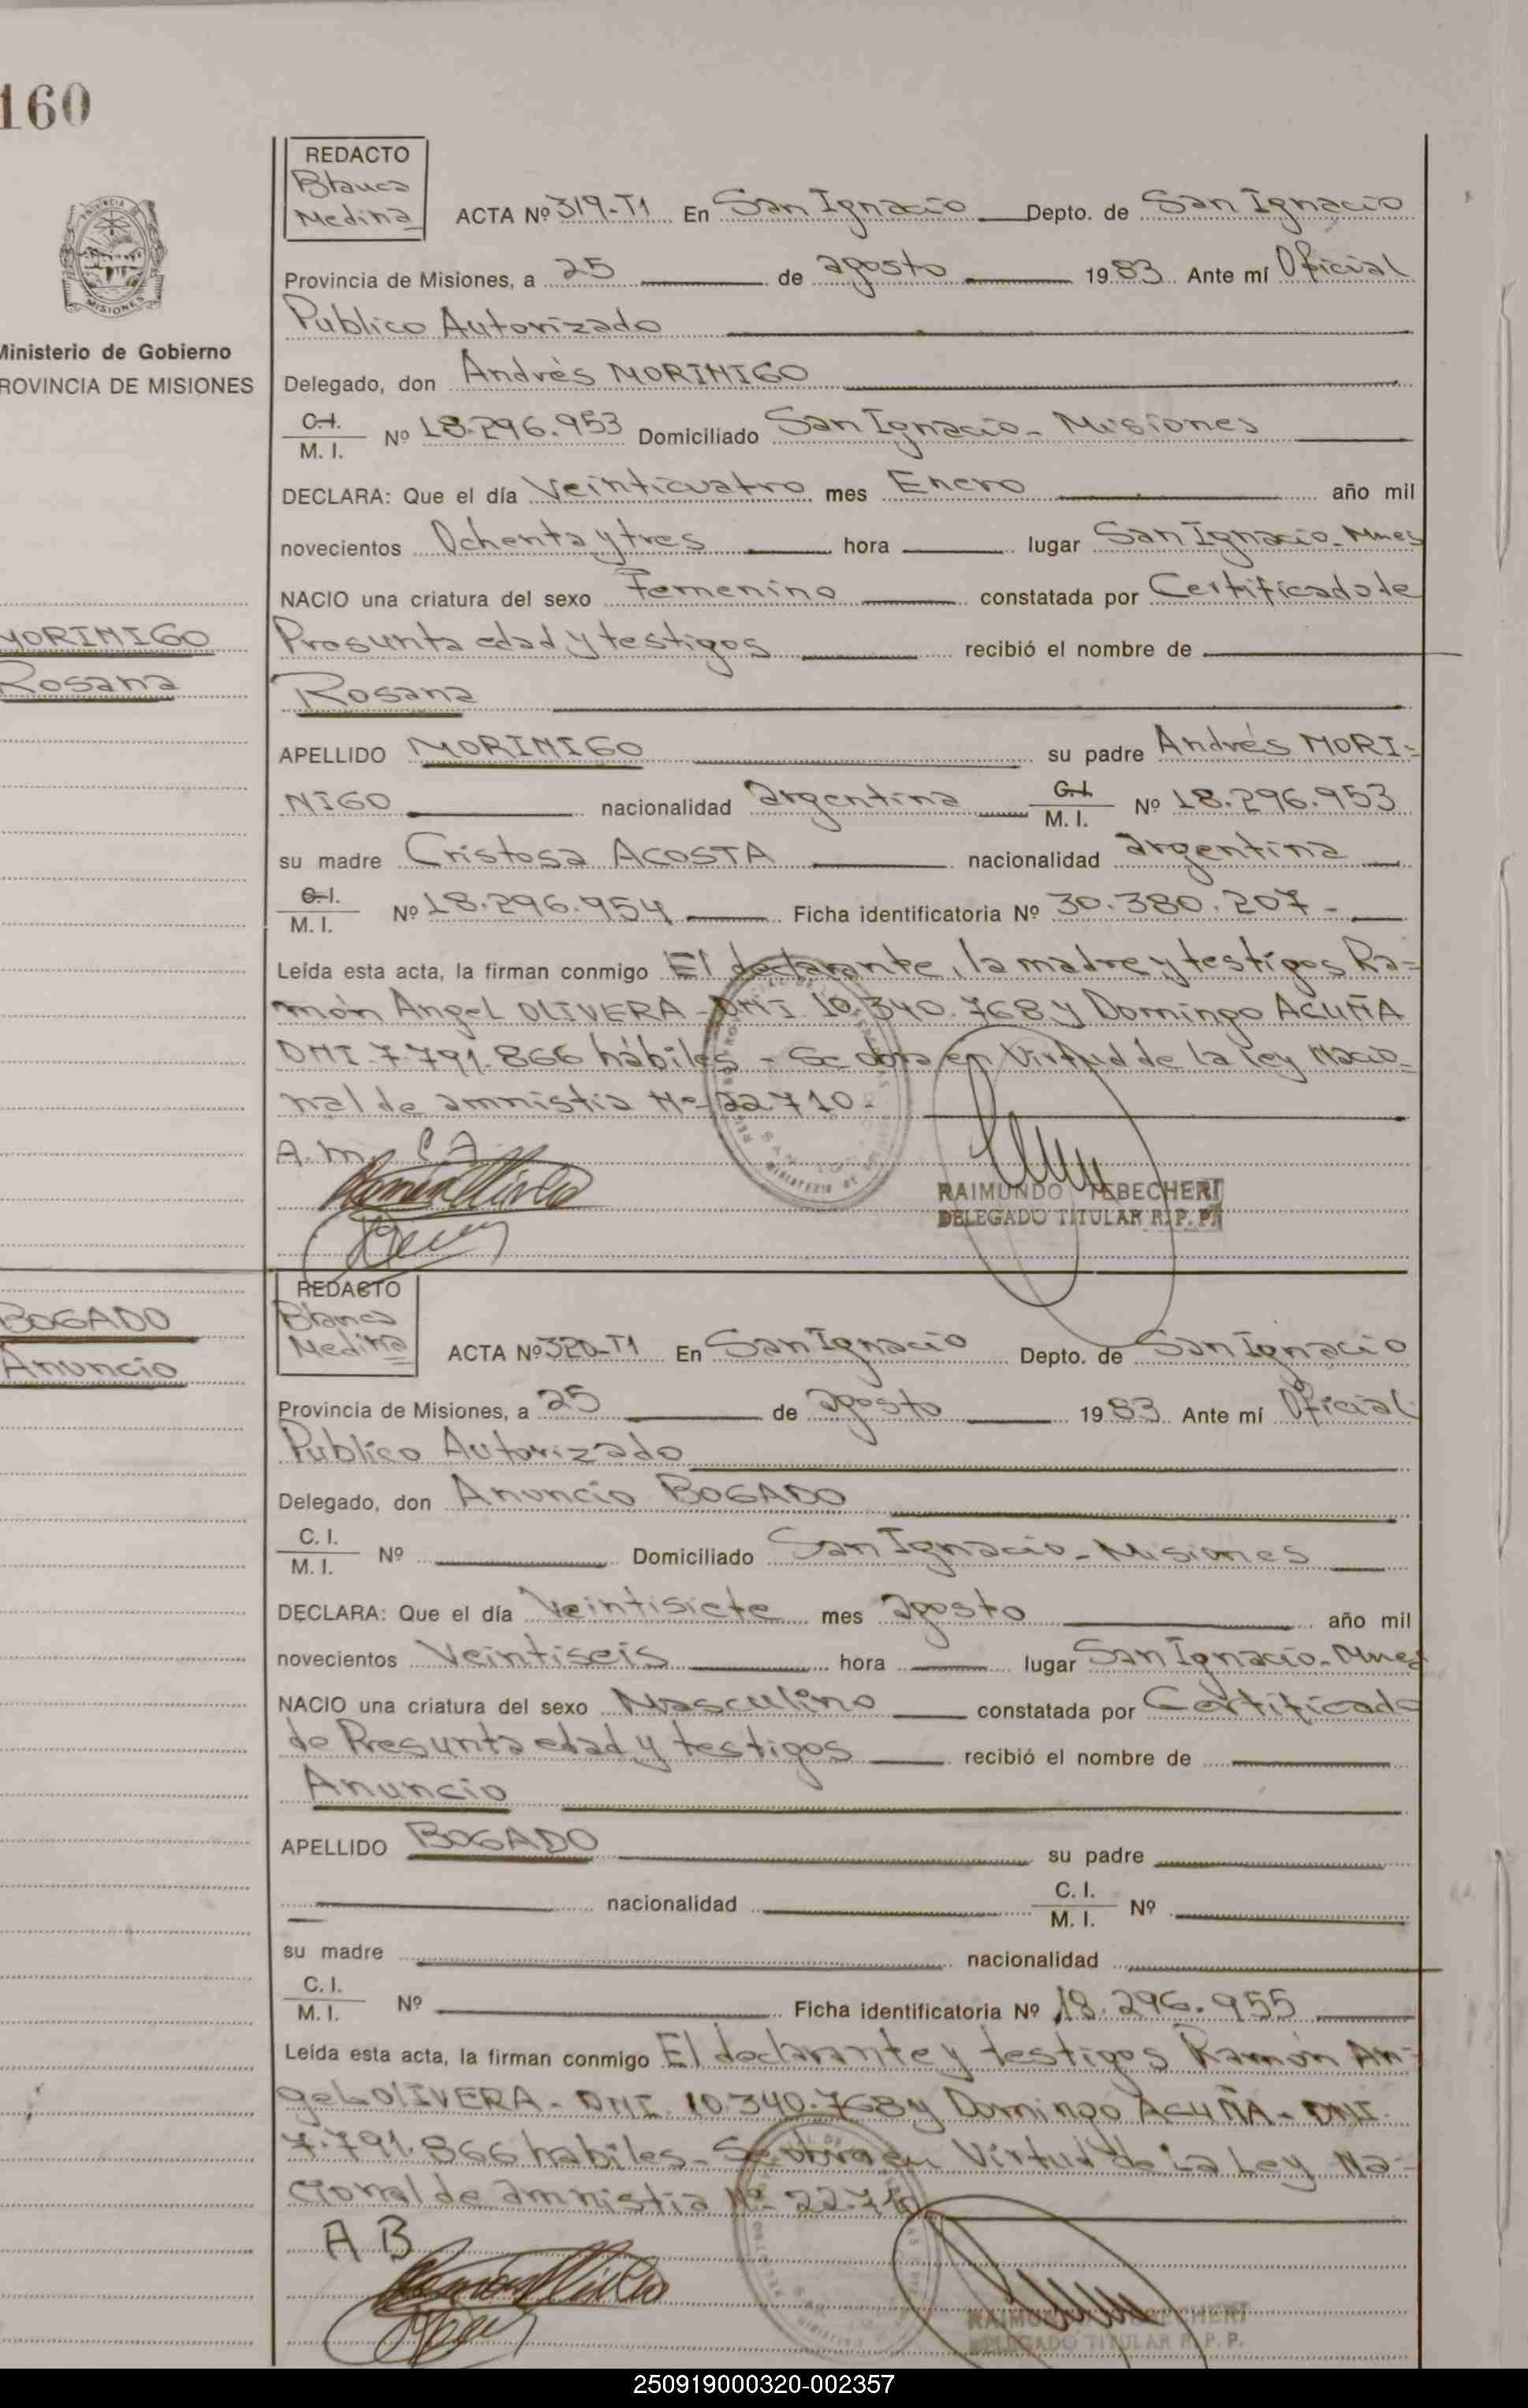 160
REDACTO
Blanca
Medina
ACTA Nº 319-T1 En San Ignacio Depto. de San Ignacio
Provincia de Misiones, a 25 de agosto 1983 Ante mí Oficial
Publico Autorizado
Ministerio de Gobierno
PROVINCIA DE MISIONES
Delegado, don Andrés MORINIGO
C.I.
M. I. Nº 18.296.953 Domiciliado San Ignacio - Misiones
DECLARA: Que el día Veinticuatro mes Enero año mil
novecientos Ochenta y tres hora lugar San Ignacio - Mnes
NACIO una criatura del sexo Femenino constatada por Certificado de
MORINIGO
Presunta edad y testigos recibió el nombre de
Rosana
Rosana
APELLIDO MORINIGO su padre Andrés MORI=
NIGO nacionalidad argentina C.I.
M. I. Nº 18.296.953
su madre Cristosa ACOSTA nacionalidad argentina
C.I.
M. I. Nº 18.296.954 Ficha identificatoria Nº 30.380.207-
Leída esta acta, la firman conmigo El declarante, la madre y testigos Ra=
món Angel OLIVERA - DNI. 10.340.768 y Domingo ACUÑA
DNI. 7.791.866 hábiles - Se obra en Virtud de la ley Nacio=
nal de amnistia Nº 22710.
A. M. C A
RAIMUNDO TEBECHERI
DELEGADO TITULAR R.P.P.
REDACTO
BOGADO
Blanca
Medina
Anuncio
ACTA Nº 320-T1 En San Ignacio Depto. de San Ignacio
Provincia de Misiones, a 25 de agosto 1983 Ante mí Oficial
Publico Autorizado
Delegado, don Anuncio BOGADO
C. I.
M. I. Nº Domiciliado San Ignacio - Misiones
DECLARA: Que el día Veintisiete mes agosto año mil
novecientos Veintiseis hora lugar San Ignacio - Mnes
NACIO una criatura del sexo Masculino constatada por Certificado
de Presunta edad y testigos recibió el nombre de
Anuncio
APELLIDO BOGADO su padre
nacionalidad C. I.
M. I. Nº
su madre nacionalidad
C. I.
M. I. Nº Ficha identificatoria Nº 18.296.955
Leída esta acta, la firman conmigo El declarante y testigos Ramón An=
gel OLIVERA - DNI. 10.340.768 y Domingo ACUÑA - DNI.
7.791.866 habiles - Se obra en Virtud de la Ley Na=
cional de amnistia Nº 22.710
A B
RAIMUNDO TEBECHERI
DELEGADO TITULAR R.P.P.
250919000320-002357